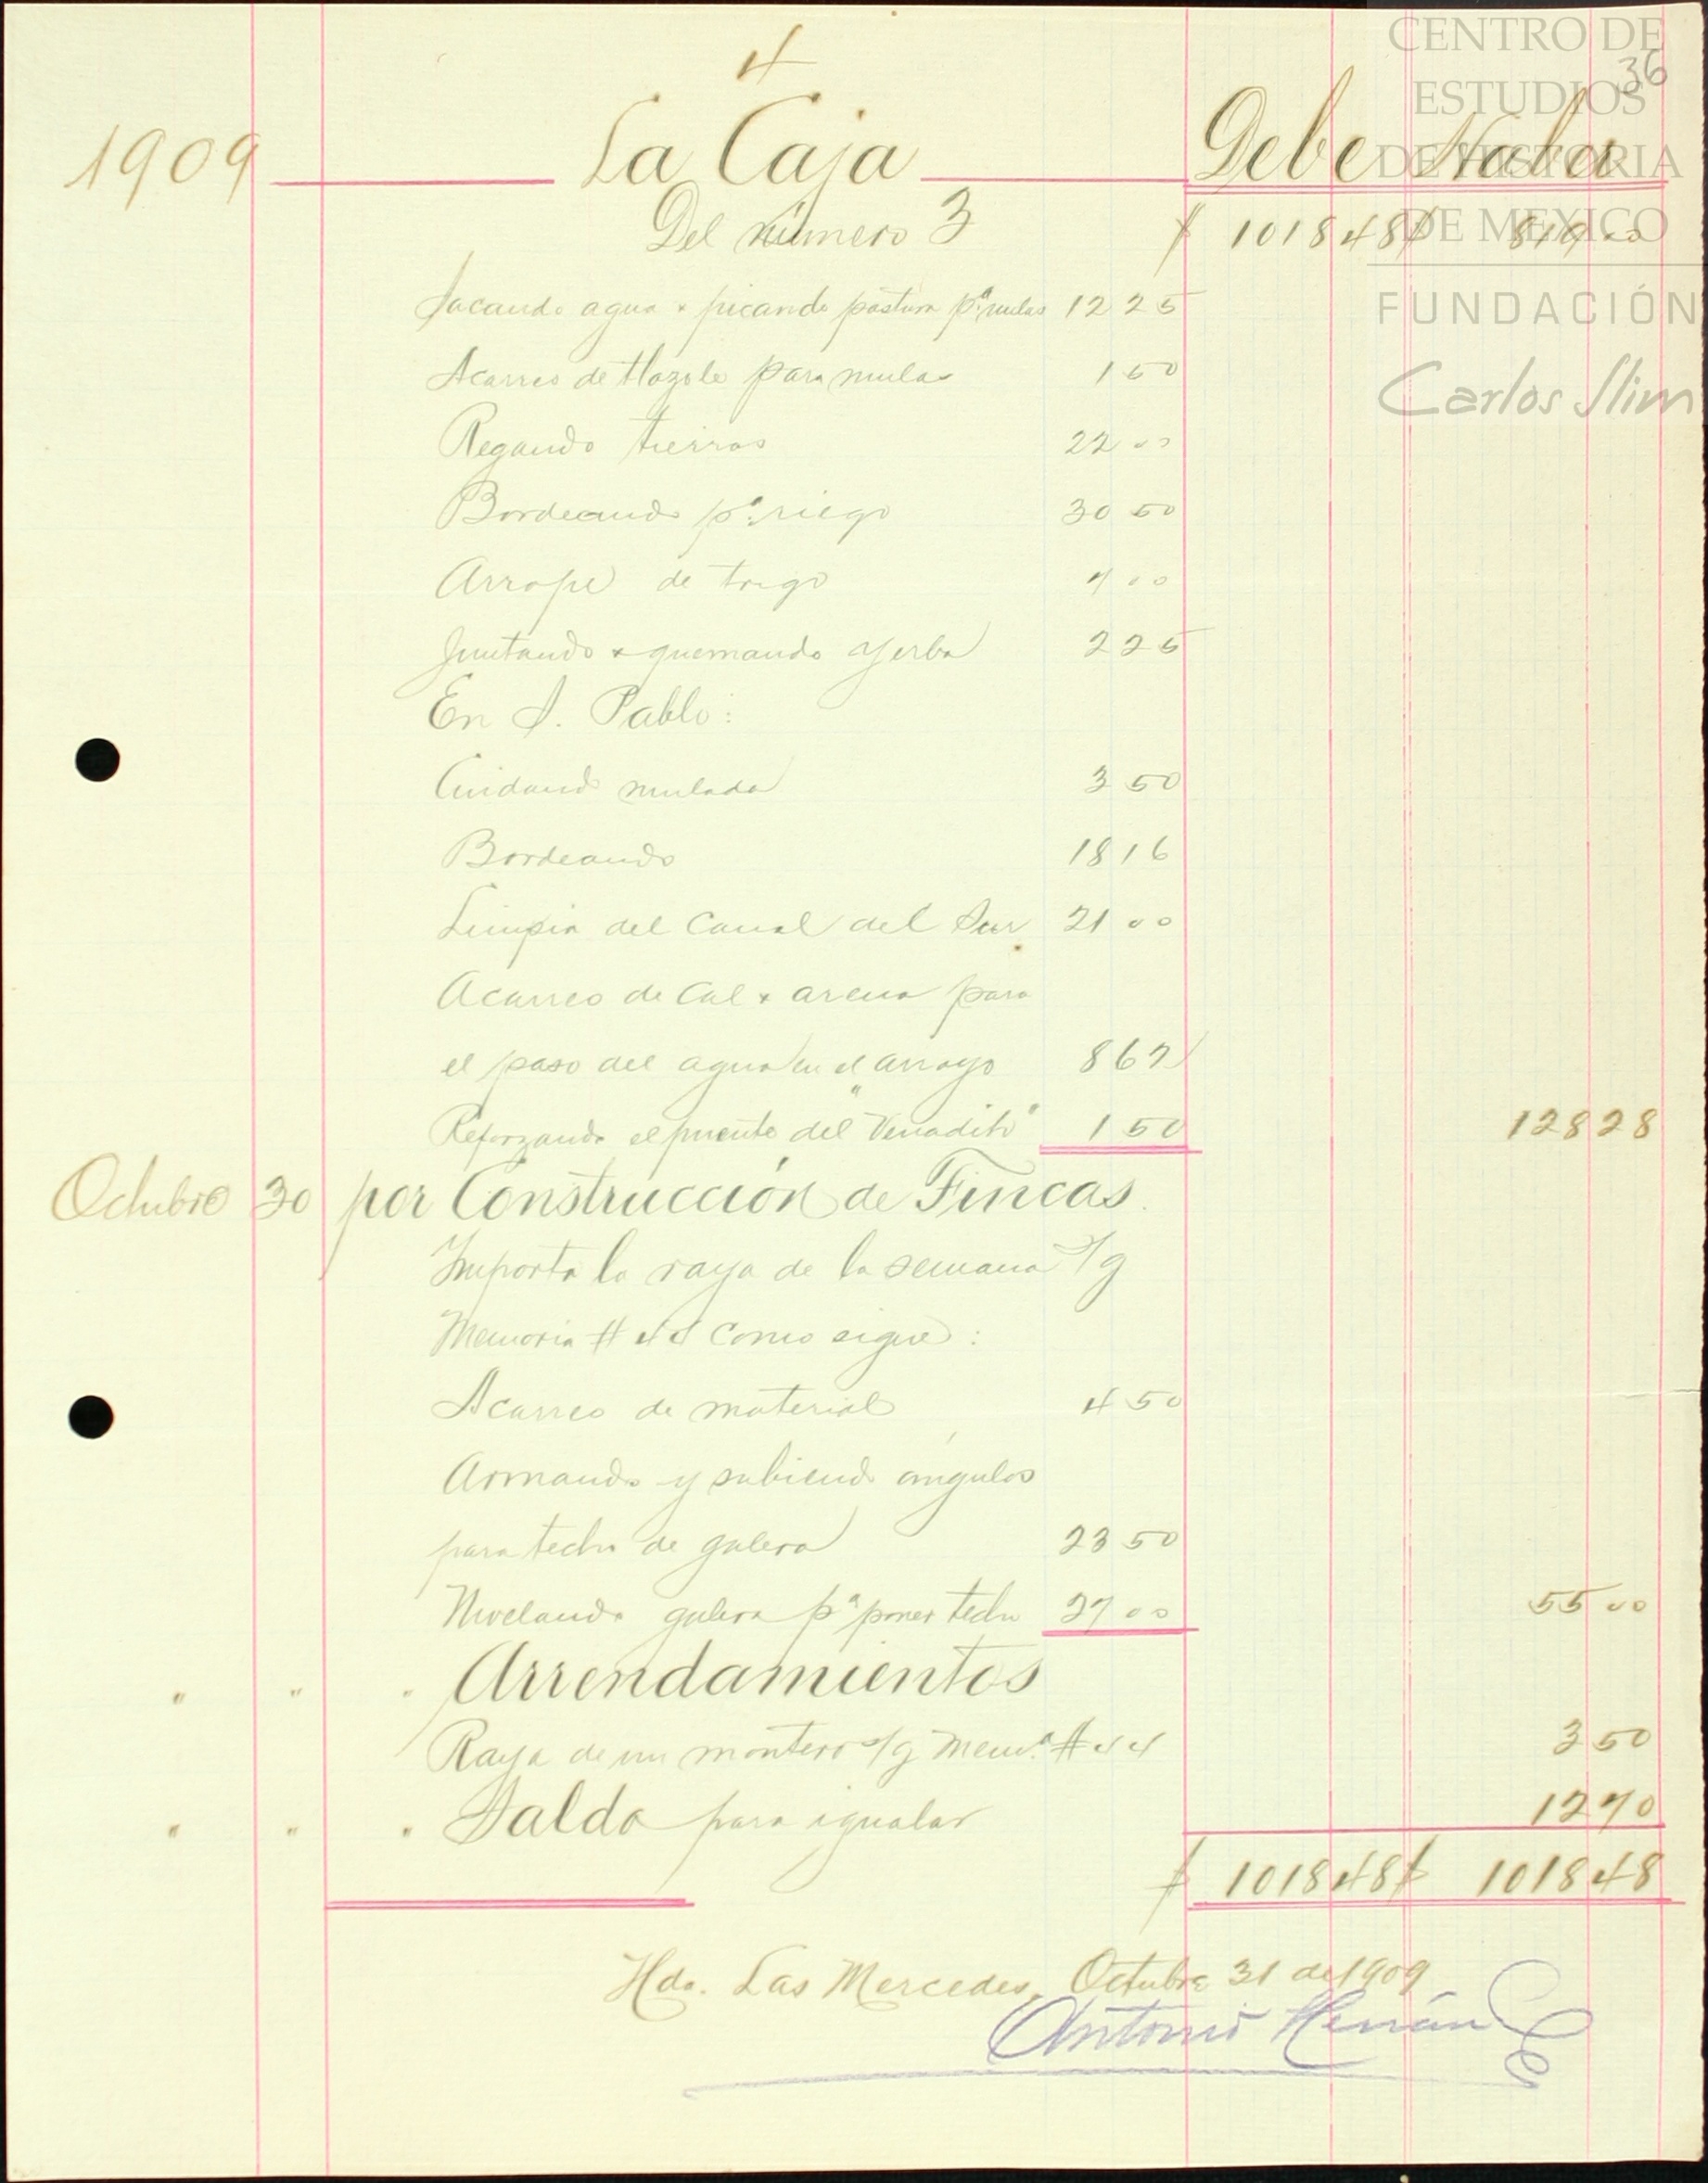 CENTRO DE
ESTUDIOS
DE HISTORIA
DE MEXICO
FUNDACIÓN
Carlos Slim
36
4
1909 La Caja Debe Haber
Del número 3 $ 1018 48 $ 819 00
Sacando agua x picando pastura pª mulas 12 25
Acarreo de tlazole para mulas 1 50
Regando tierras 22 00
Bordeando pª riego 30 50
Arrope de trigo 7 00
Juntando x quemando yerba 2 25
En S. Pablo:
Cuidando mulada 3 50
Bordeando 18 16
Limpia del Canal del Sur 21 00
Acarreo de Cal x arena para
el paso del agua en el arroyo 8 62
Reforzando el puente del "Venadito" 1 50 128 28
Octubre 30 por Construcción de Fincas.
Importa la raya de la semana s/g
Memoria # 44 como sigue:
Acarreo de material 4 50
Armando y subiendo ángulos
para techo de galera 23 50
Nivelando galera pª poner techo 27 00 55 00
" " " Arrendamientos
Raya de un montero s/g Memª # 44 3 50
" " " Saldo para igualar 12 70
$ 1018 48 $ 1018 48
Hda. Las Mercedes, Octubre 31 de 1909
Antonio Herrán